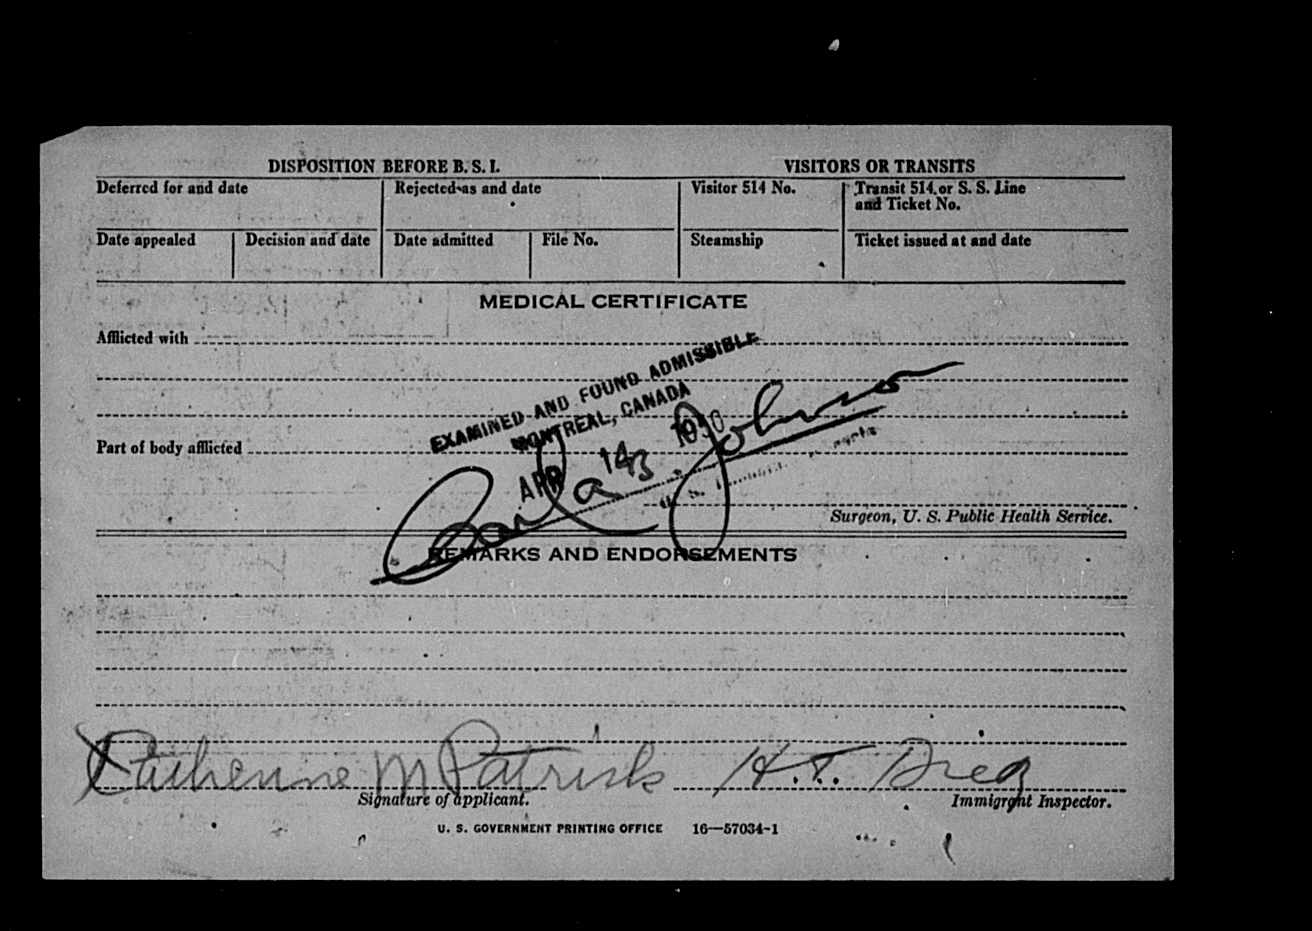 DISPOSITION BEFORE B. S. I.
VISITORS OR TRANSITS
Deferred for and date
Rejected as and date
Visitor 514 No.
Transit 514 or S. S. Line
and Ticket No.
Date appealed
Decision and date
Date admitted
File No.
Steamship
Ticket issued at and date
MEDICAL CERTIFICATE
Afflicted with
EXAMINED AND FOUND ADMISSIBLE
MONTREAL, CANADA
APR 14
Part of body afflicted
Carl a. Johnson
Surgeon, U. S. Public Health Service.
REMARKS AND ENDORSEMENTS
Catherine M Patrick
H. T.
Signature of applicant.
Immigrant Inspector.
U. S. GOVERNMENT PRINTING OFFICE 16—57034-1